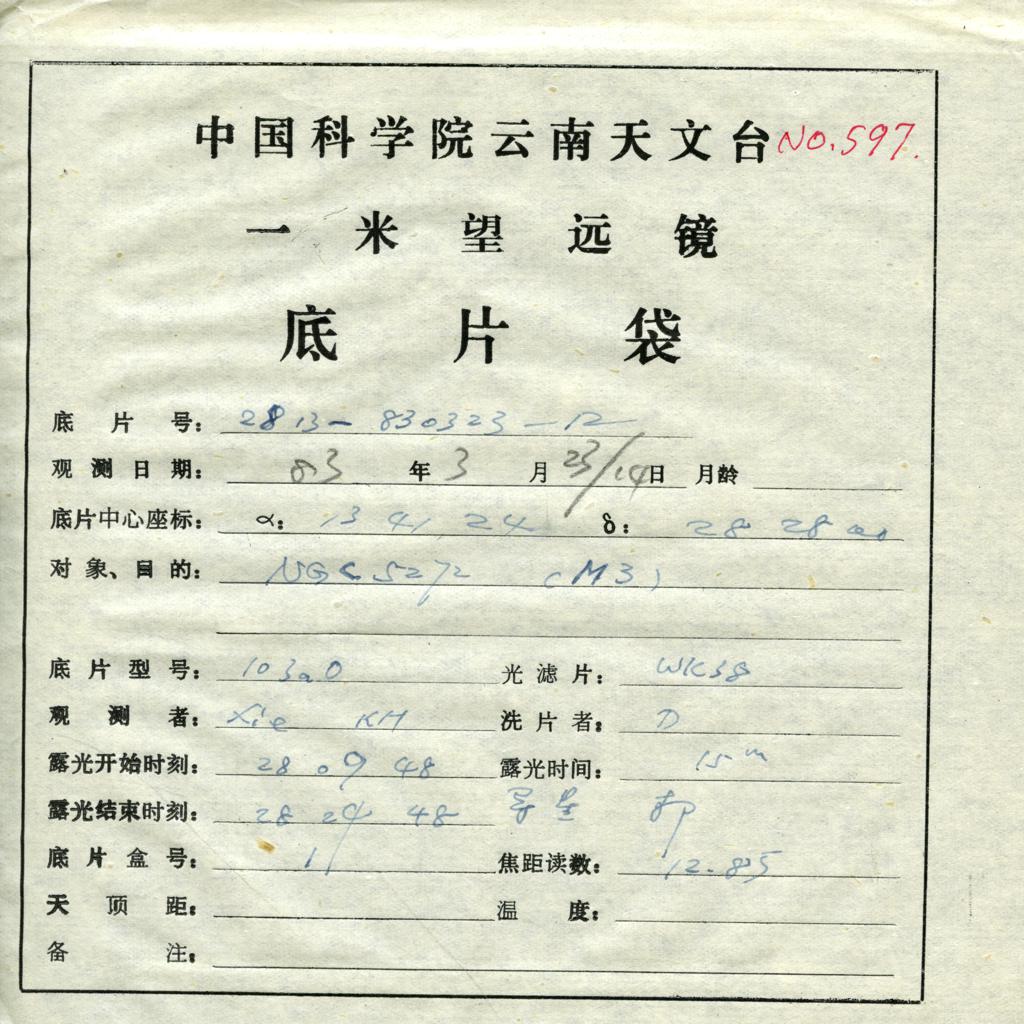 中国科学院云南天文台 NO.597.
一米望远镜
底片袋
底片号： 2813-830323-12
观测日期： 83 年 3 月 23/24 日 月龄
底片中心座标： α： 13 41, 24 δ： 28 28 00
对象、目的： NGC 5272 (M3)
底片型号： 103aO 光滤片： WK38
观测者： Xie KH 洗片者： D
露光开始时刻： 28 09 48 露光时间： 15m
露光结束时刻： 28 24 48 导星
底片盒号： 1 焦距读数： 12.85
天顶距： 温度：
备注：